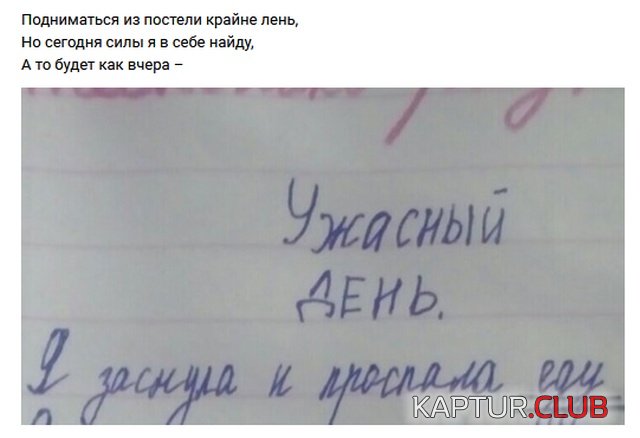 Подниматься из постели крайне лень,
Но сегодня силы я в себе найду,
А то будет как вчера –
Ужасный
ДЕНЬ.
Я заснула и проспала еду
KAPTUR.CLUB